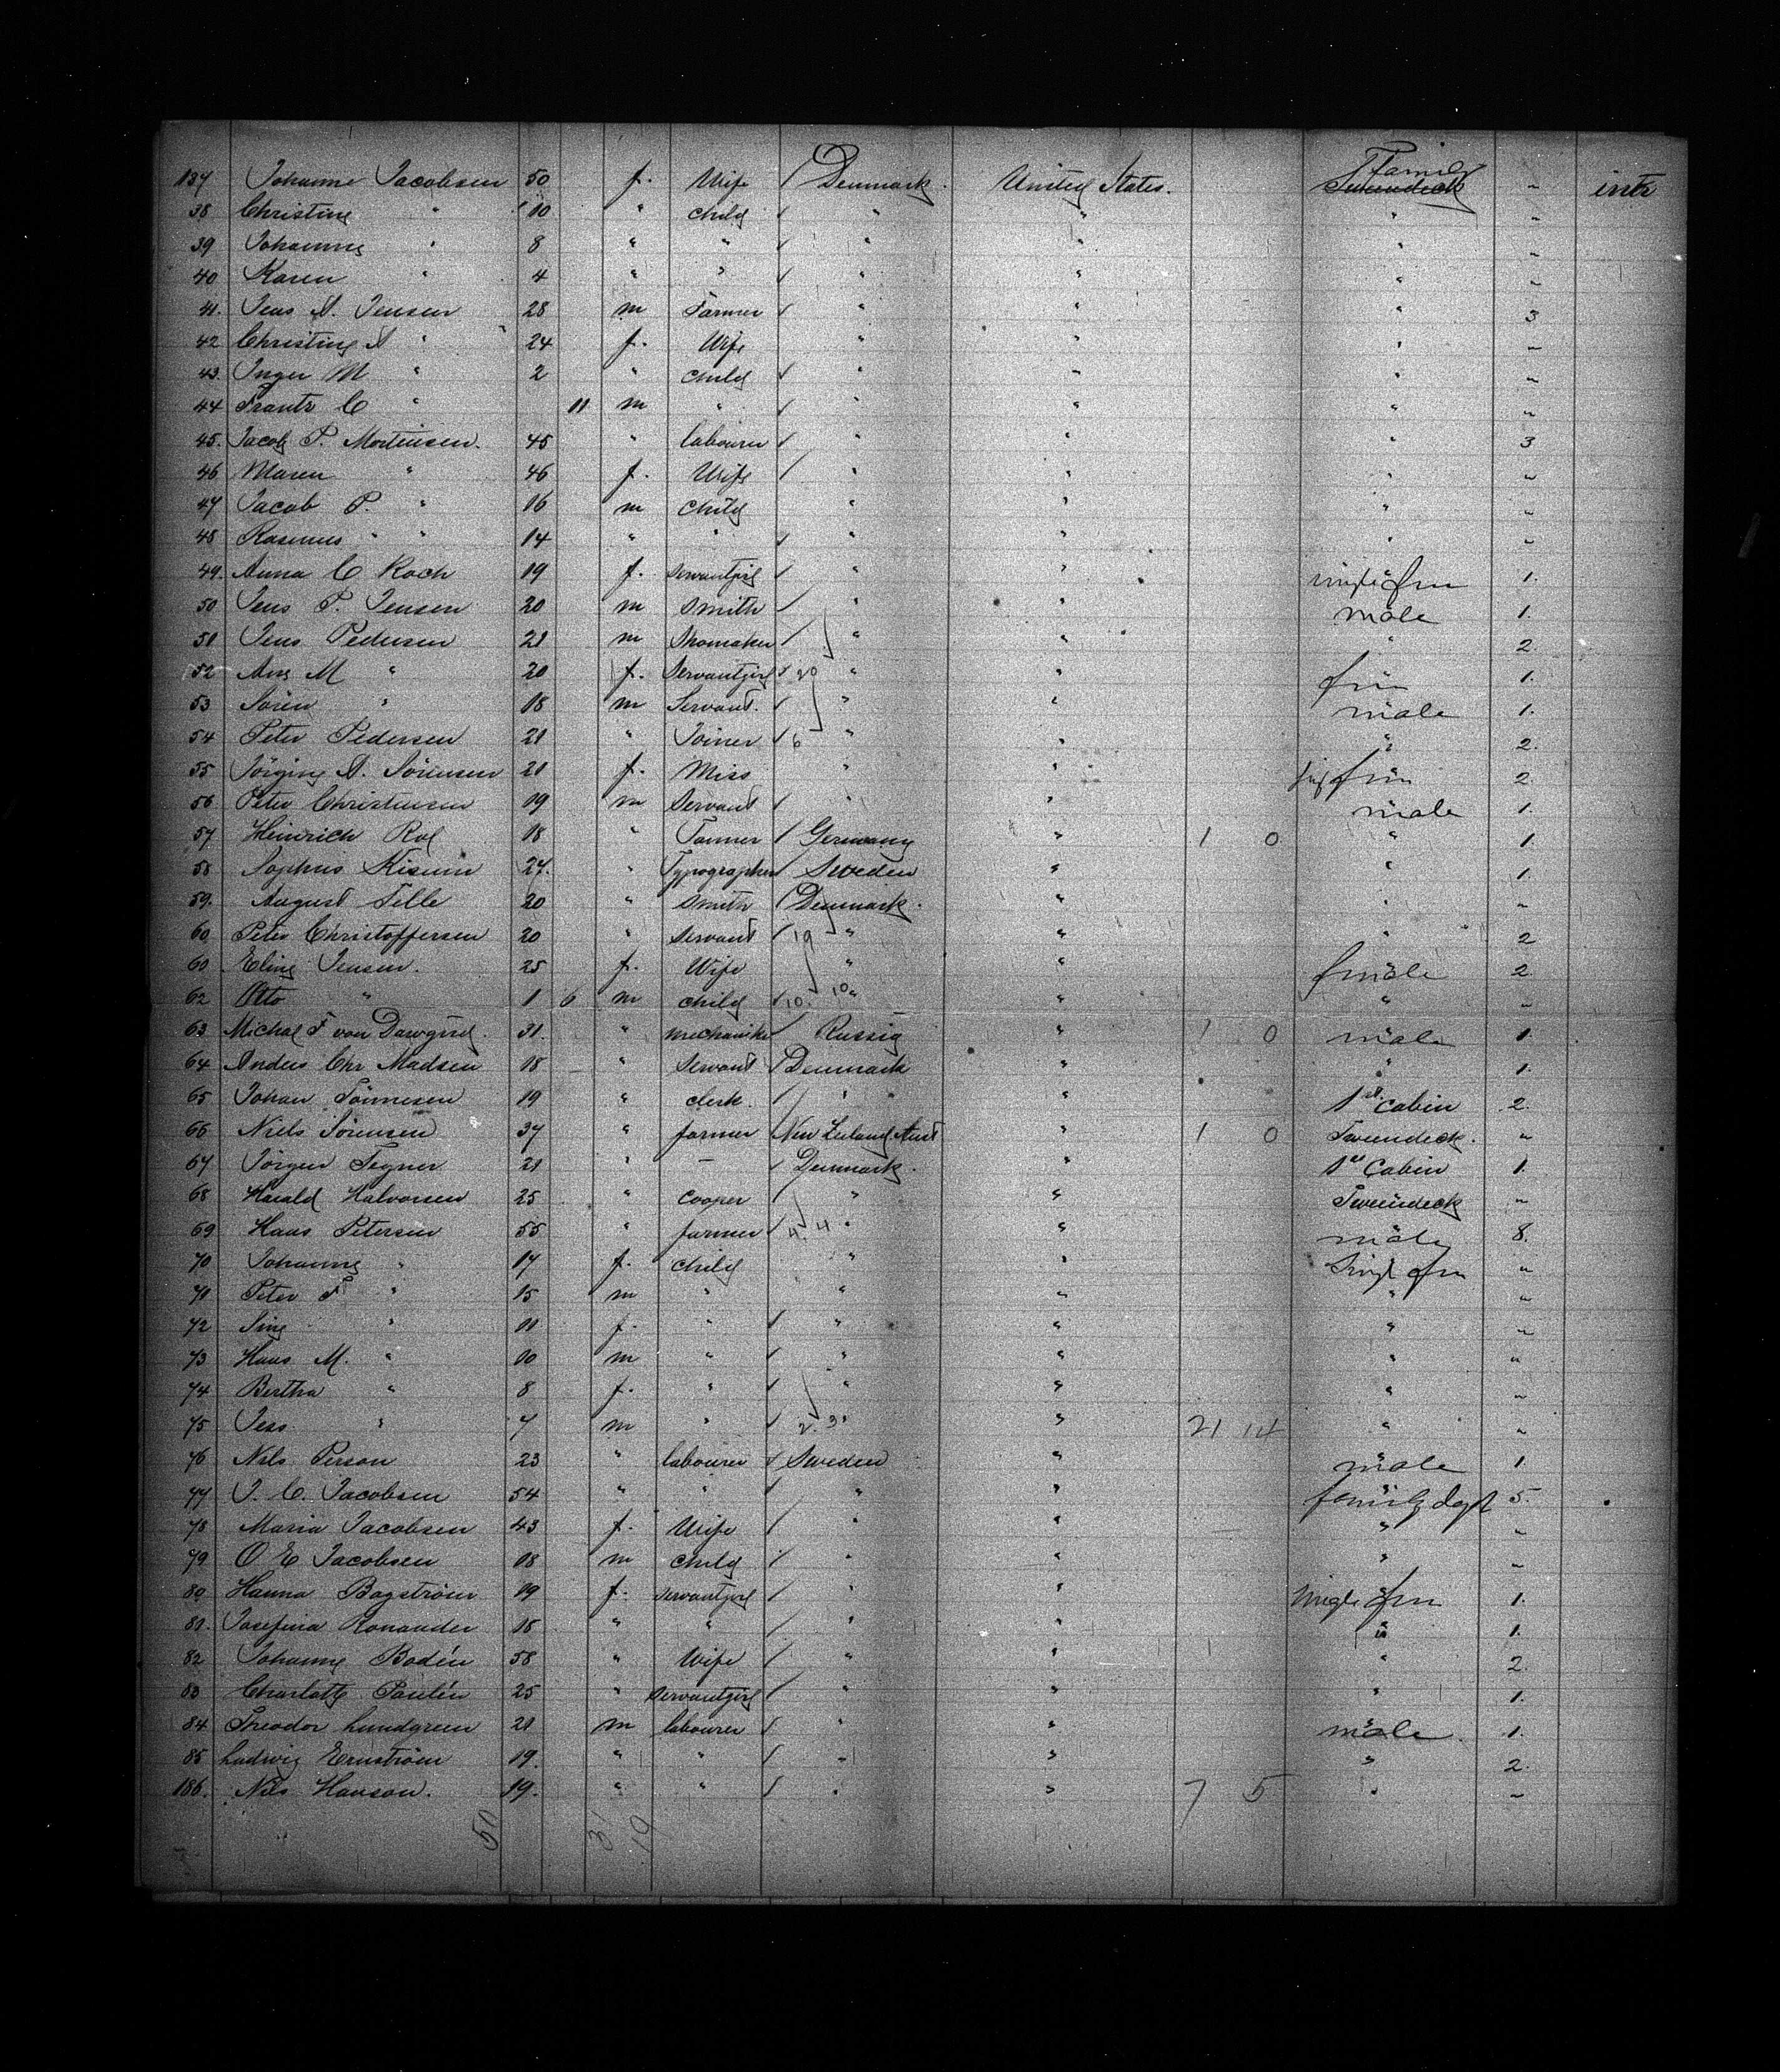 Family
137 Johanne Jacobsen 50 f. Wife / Denmark. United States. Tweendeck " intr
38 Christine " 10 " child / " " " "
39 Johanne " 8 " " / " " " "
40 Karen " 4 " " / " " " "
41. Jens A. Jensen 28 m Farmer / " " " 3
42 Christine A " 24 f. Wife " " " "
43. Inger M " 2 " child / " " " "
44 Frantz C " 11 m " / " " " "
45. Jacob P. Mortensen. 45 " labourer / " " " 3
46 Maren " 46 f. Wife / " " " "
47 Jacob P. " 16 m child " " " "
48 Rasmus " " 14 " " / " " " "
49. Anna C Koch 19 f. servantgirl / " " 1.
50 Jens P. Jensen 20 m smith / " " male 1.
51 Jens Pedersen 21 m Shomaker / " " " 2
52 Ane M " 20 f. Servantgirl / 20 " " 1.
53 Sören " 18 m Servant. / " " male 1.
54 Peter Pedersen 21 " Joiner / 6 " " " 2.
55 Jörgine A. Sörensen 21 f. Miss " " 2
56 Peter Christensen 19 m Servant / " " male 1.
57 Heinrich 18 " / Germany " 1 0 " 1.
58 Sophus 27. " Typographer / Sweden " " 1.
59. August Telle 20 " smith / Denmark. " " "
60 Peter Christoffersen 20 " servant / 19 " " " 2
60 Eline Jensen. 25 f. Wife " " 2
62 Otto " 1 6 m child / 10. 10 " " " "
63 Michal F von 31. " / Russia " 1 0 male 1.
64 Anders Chr Madsen 18 " Servant / Denmark " " 1.
65 Johan Tönnesen 19 " clerk. / " " 1st Cabin 2.
66 Niels Sörensen 37 " farmer / New Zealand Aust " 1 0 Tweendeck. "
67 Jörgen Tegner 21 " — / Denmark. " 1st Cabin 1.
68 Harald Halvorsen 25 " cooper / " " Tweendeck "
69 Hans Petersen 55 " farmer / 4. 4 " " male 8.
70 Johanne " 17 f. child " " "
71 Peter F " 15 m " " " " "
72 Sine " 11 f. " / " " " "
73 Hans M. " 10 m " / " " " "
74 Bertha " 8 f. " / " " " "
75 Jess " 7 m " / 2. 3 " " 21 14 " "
76 Nils Person 23 " labourer / Sweden " male 1.
77 J. C. Jacobsen 54 " " / " " 5.
78 Maria Jacobsen 43 f. Wife / " " " "
79 O E Jacobsen 18 m child / " " " "
80 Hanna Bagström 19 f. servantgirl / " " 1.
81. Josefina Ronander 18 " " / " " " 1.
82 Johanne Bodén 58 " Wife / " " " 2.
83 Charlotte Paulén 25 " servantgirl / " " " 1.
84. Theodor Lundgreen 21 m labourer / " " male. 1.
85 Ludwig Ernström 19. " " / " " " 2.
186. Nils Hanson. 19. " " / " " 7 5 " "
50 31 19